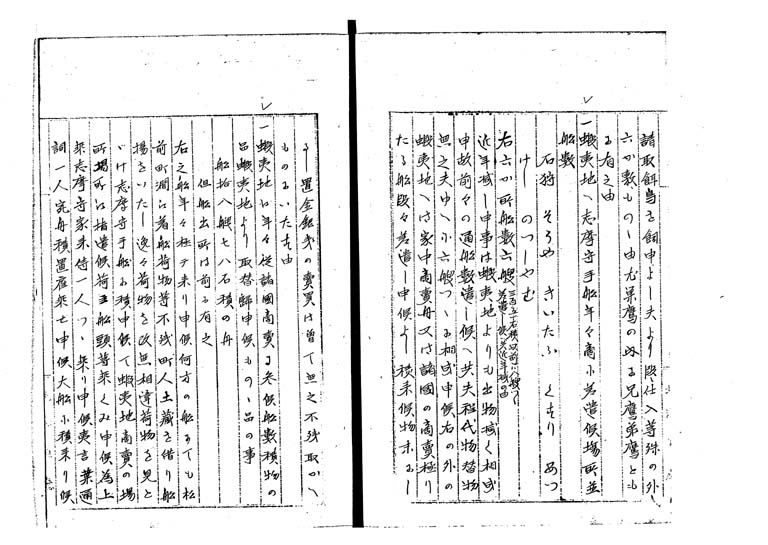 請取餌等を餌申よし夫より段々仕入等殊の外
六か敷ものゝ由尤巣鷹の外に兄鷹弟鷹とも
に有之由
一蝦夷地へ志摩守手船年々商に差遣候場所並
船数
石狩 そうや きいたふ くすり あつ
けし のつしやむ
右六か所船数六艘
近年減し申事は蝦夷地よりも出物減く相成
申故前々の通船数遣し候へ共夫程代物替物
無之夫ゆへに六艘つゝに相成申候右の外の
蝦夷地へは家中商賣舟又は諸國の商賣極り
たる船段々差遣し申候よ 積来候物未たし
よし置金銀等の賣買は曽て無之不残取かへ
ものにいたす由
一蝦夷地に年々從諸國商賣に参候船数積物の
品蝦夷地より取替歸申候ものゝ品の事
船拾八艘七八石積の舟
但船出所は前に有之
右之船年々極て来り申候何方の船にても松
前町澗に着船荷物等不残町人土蔵を借り船
揚をいたし逸々荷物を改無相違荷物を見と
ゝけ志摩守手船に積申候て蝦夷地商賣の場
所場所に指遣候荷主船頭等乗くみ申候為上
乗志摩守家来侍一人つゝ乗り申候夷言葉通
詞一人宛船積置産乗せ申候大船に積来り候